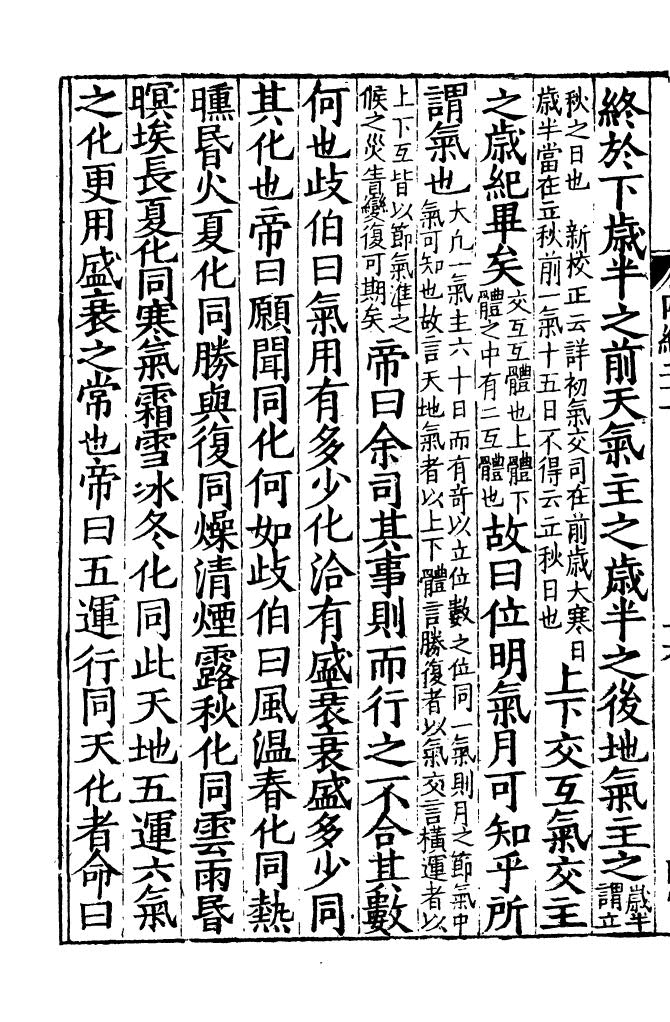 終於下歳半之前天氣主之歳半之後地氣主之歳半謂立
秋之日也　新校正云詳初氣交司在前歳大寒日歳半當在立秋前一氣十五日不得云立秋日也上下交互氣交主
之歳紀畢矣交互互體也上體下體之中有二互體也故曰位明氣月可知乎所
謂氣也大凢一氣主六十日而有奇以立位數之位同一氣則月之節氣中氣可知也故言天地氣者以上下體言勝復者以氣交言橫運者以
上下互皆以節氣準之候之災眚變復可期矣帝曰余司其事則而行之不合其數
何也歧伯曰氣用有多少化洽有盛衰衰盛多少同
其化也帝曰願聞同化何如歧伯曰風温春化同熱
曛昏火夏化同勝與復同燥清煙露秋化同雲雨昏
暝埃長夏化同寒氣霜雪冰冬化同此天地五運六氣
之化更用盛衰之常也帝曰五運行同天化者命曰